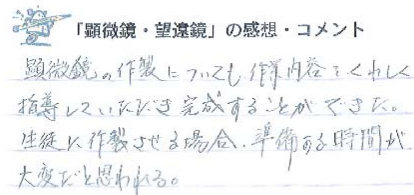 「顕微鏡・望遠鏡」の感想・コメント
顕微鏡の作製についても、作業内容をくわしく
指導していただき完成することができた。
生徒に作製させる場合、準備する時間が
大変だと思われる。